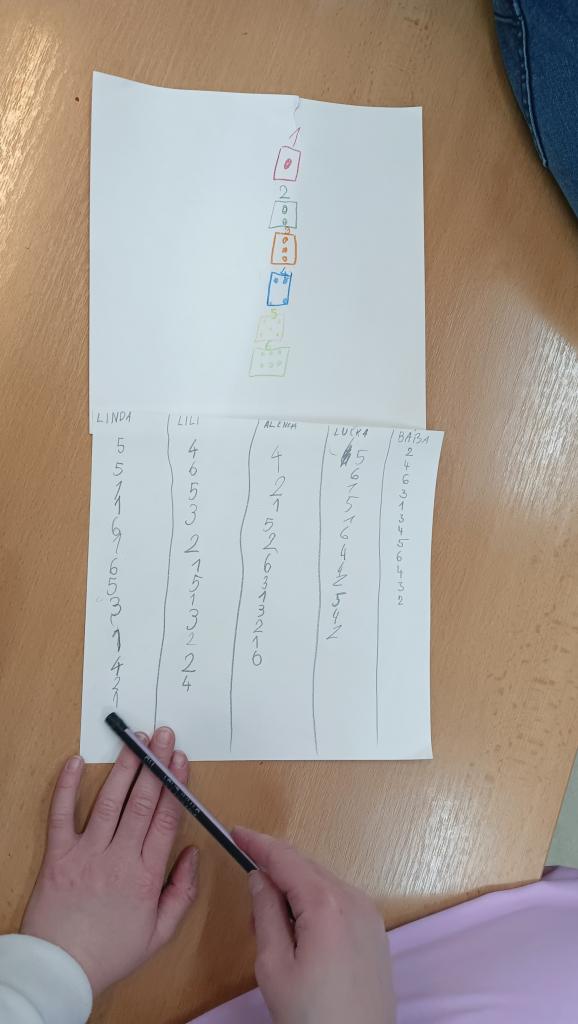 1
2
3
4
5
6
LINDA LILI ALENKA LUCKA BÁBA
5
5
1
1
6
1
6
5
3
1
4
2
1
4
6
5
3
2
1
5
1
3
2
2
4
4
2
1
5
2
6
3
1
3
2
1
6
5
6
1
5
1
6
4
1
2
5
4
2
2
4
6
3
1
3
4
5
6
4
3
2